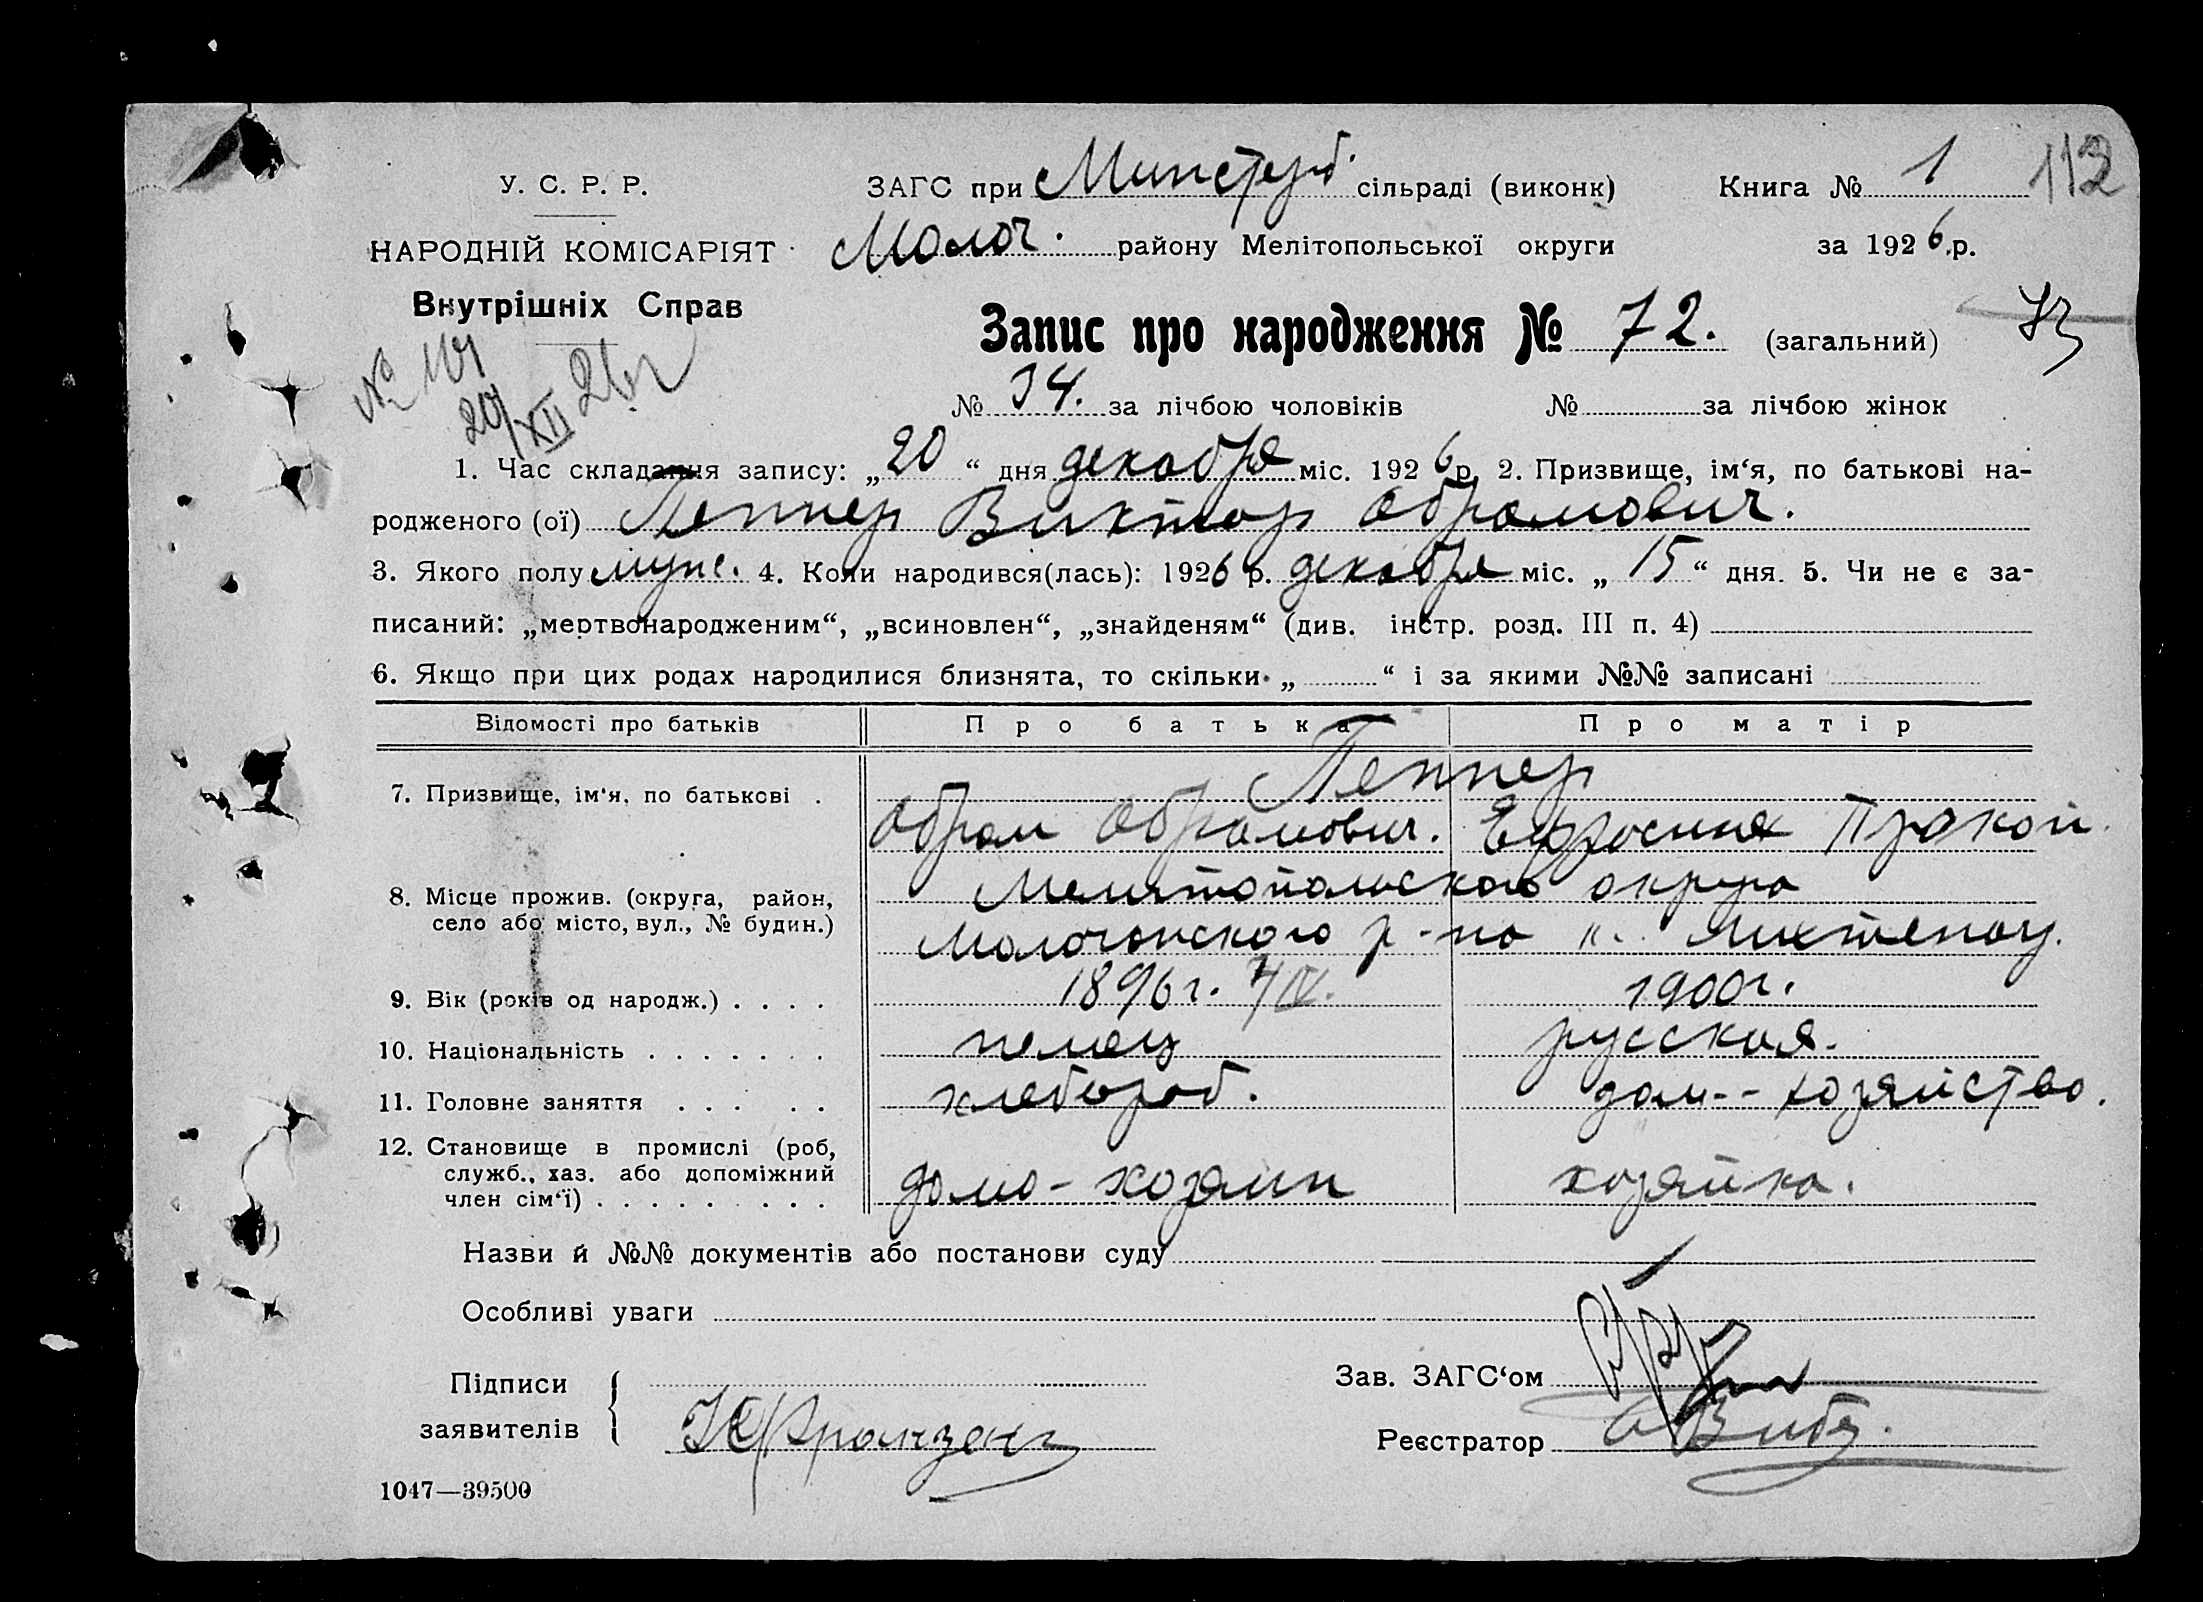 У. С. Р. Р.
НАРОДНІЙ КОМІСАРІЯТ
Внутрішніх Справ
ЗАГС при Минстерб. сільраді (виконк)
Молоч. району Мелітопольської округи
Книга № 1
112
за 1926 р.
Запис про народження № 72. (загальний)
73
№ 34. за лічбою чоловіків № за лічбою жінок
№ 101
20/XII 26 г
1. Час складання запису: „20“ дня декабря міс. 1926 р. 2. Призвище, ім‘я, по батькові на-
родженого (ої) Пеннер Виктор Абрамович.
3. Якого полу муж. 4. Коли народився(лась): 1926 р. декабря міс. „15“ дня. 5. Чи не є за-
писаний: „мертвонародженим“, „всиновлен“, „знайденям“ (див. інстр. розд. III п. 4)
6. Якщо при цих родах народилися близнята, то скільки „ “ і за якими №№ записані
Відомості про батьків Про батька Про матір
7. Призвище, ім‘я, по батькові . Пеннер
Абрам Абрамович. Ефросиния Прокоп.
8. Місце прожив. (округа, район, Мелитопольского округа
село або місто, вул., № будин.) Молочанского р-на к. Лихтенау.
9. Вік (років од народж.) . . . . 1896 г. 7/IV. 1900 г.
10. Національність . . . . . . . немец русская.
11. Головне заняття . . . . . хлебороб. дом-- хозяйство.
12. Становище в промислі (роб,
служб., хаз. або допоміжний
член сім‘ї) . . . . . . . . . домо-хозяин хозяйка.
Назви й №№ документів або постанови суду
Особливі уваги
Підписи
заявителів
Франзен
Зав. ЗАГС‘ом
Реєстратор Вибе.
1047—39500